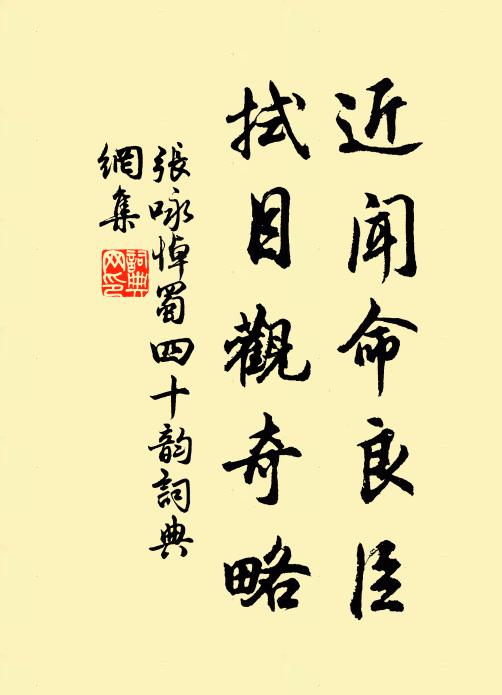 近聞命良臣
拭目觀奇略
張咏悼蜀四十韵詞典
網集
詞典
网印